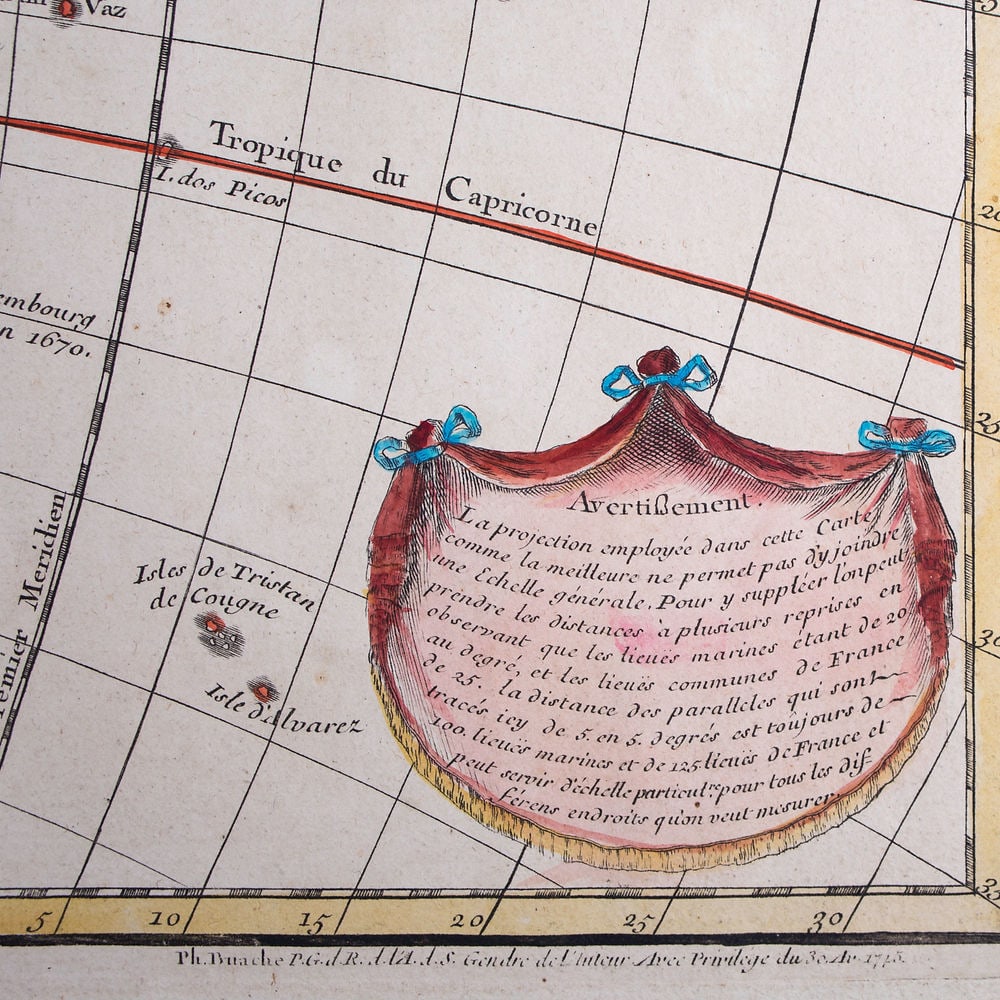 Vaz
Tropique du Capricorne
I. dos Picos
embourg
n 1670.
Premier Meridien
Isles de Tristan
de Cougne
Isle d'Alvarez
Avertißement.
La projection employée dans cette Carte
comme la meilleure ne permet pas d'y joindre
une Echelle générale. Pour y suppléer l'on peut
prendre les distances à plusieurs reprises en
observant que les lieuës marines étant de 20
au degré, et les lieuës communes de France
de 25. la distance des paralleles qui sont
tracés icy de 5. en 5. degrés est toûjours de
100. lieuës marines et de 125 lieuës de France et
peut servir d'échelle particulre pour tous les dif
férens endroits qu'on veut mesurer.
20
25
30
35
5 10 15 20 25 30
Ph. Buache P. G. d. R. d. l'A. d. S. Gendre de l'Auteur Avec Privilége du 30 Av. 1745.